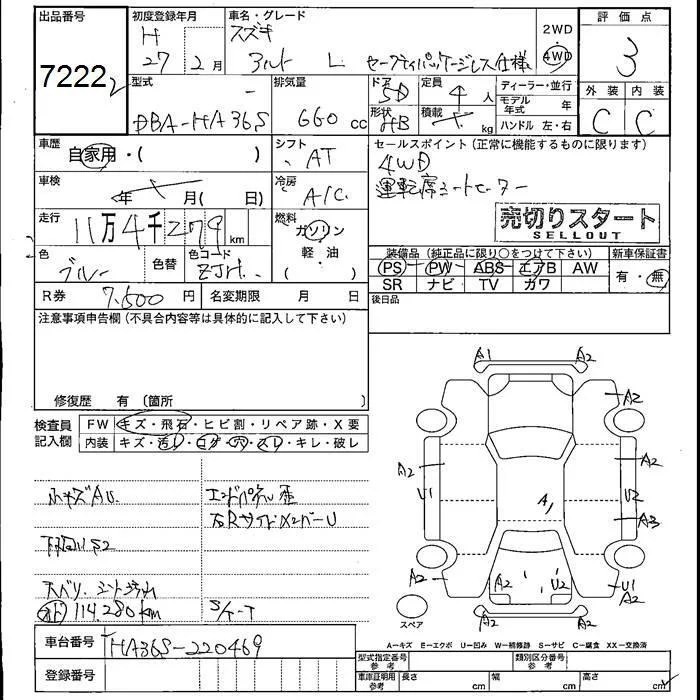 出品番号
7222
初度登録年月
H
27 年 2 月
車名・グレード
スズキ
アルト L セーフティパッケージレス仕様
2WD
4WD
評価点
3
外装 内装
C C
型式
DBA-HA36S
排気量
660 cc
ドア
5D
形状
HB
定員
4 人
積載
kg
ディーラー・並行
モデル年式 年
ハンドル 左・右
車歴
自家用・( )
シフト
AT
セールスポイント (正常に機能するものに限ります)
4WD
運転席シートヒーター
売切りスタート
SELLOUT
車検
年 月( 日)
冷房
A/C
走行
11万4千279 km
燃料
ガソリン
軽・油
色
ブルー
色替
色コード
ZJH
装備品 (純正品に限り○をつけて下さい)
PS PW ABS エアB AW
SR ナビ TV カワ
新車保証書
有・無
R券 7.600 円
名変期限 月 日
後日品
注意事項申告欄 (不具合内容等は具体的に記入して下さい)
修復歴 有 〔箇所
検査員
記入欄
FW キズ・飛石・ヒビ割・リペア跡・X要
内装 キズ・汚レ・コゲ・穴・スレ・キレ・破レ
小キズAU
エンドパネル歪
右RサイドメンバーU
下回りS2
114.280km
S/T-T
A1 A2
A2
A2 A2
U1 U2
A1 A3
A2 A2 U2 U1
A2
A2 A2
スペア
A-キズ E-エクボ U-凹み W-補修跡 S-サビ C-腐食 XX-交換済
車台番号
HA36S-220469
登録番号
型式指定番号
参考
類別区分番号
参考
車庫証明用
参考
長さ cm 幅 cm 高さ cm